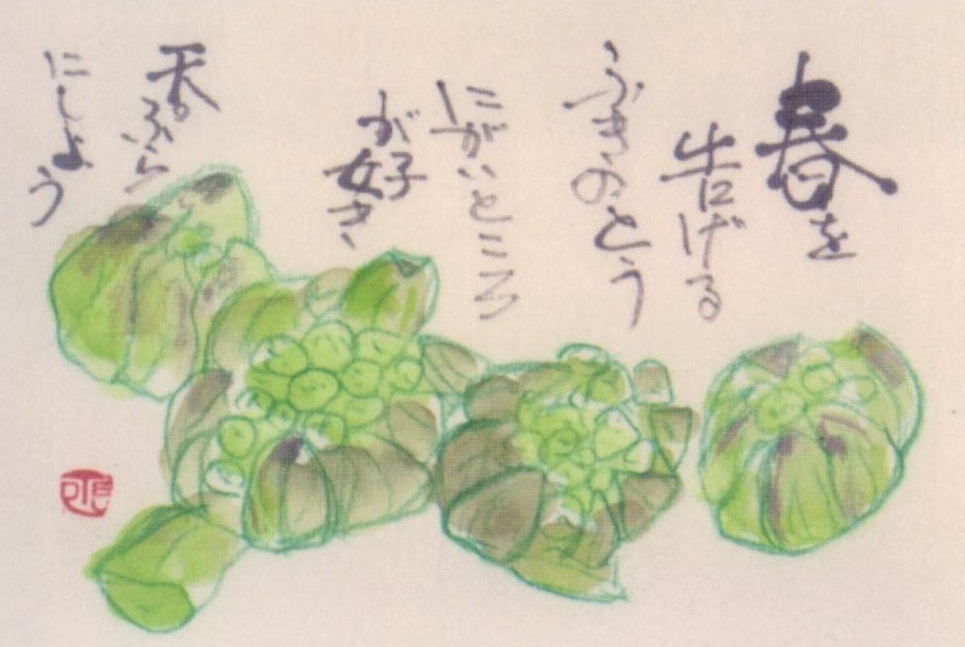 春を
告げる
ふきのとう
にがいところ
が好き
天ぷら
にしよう